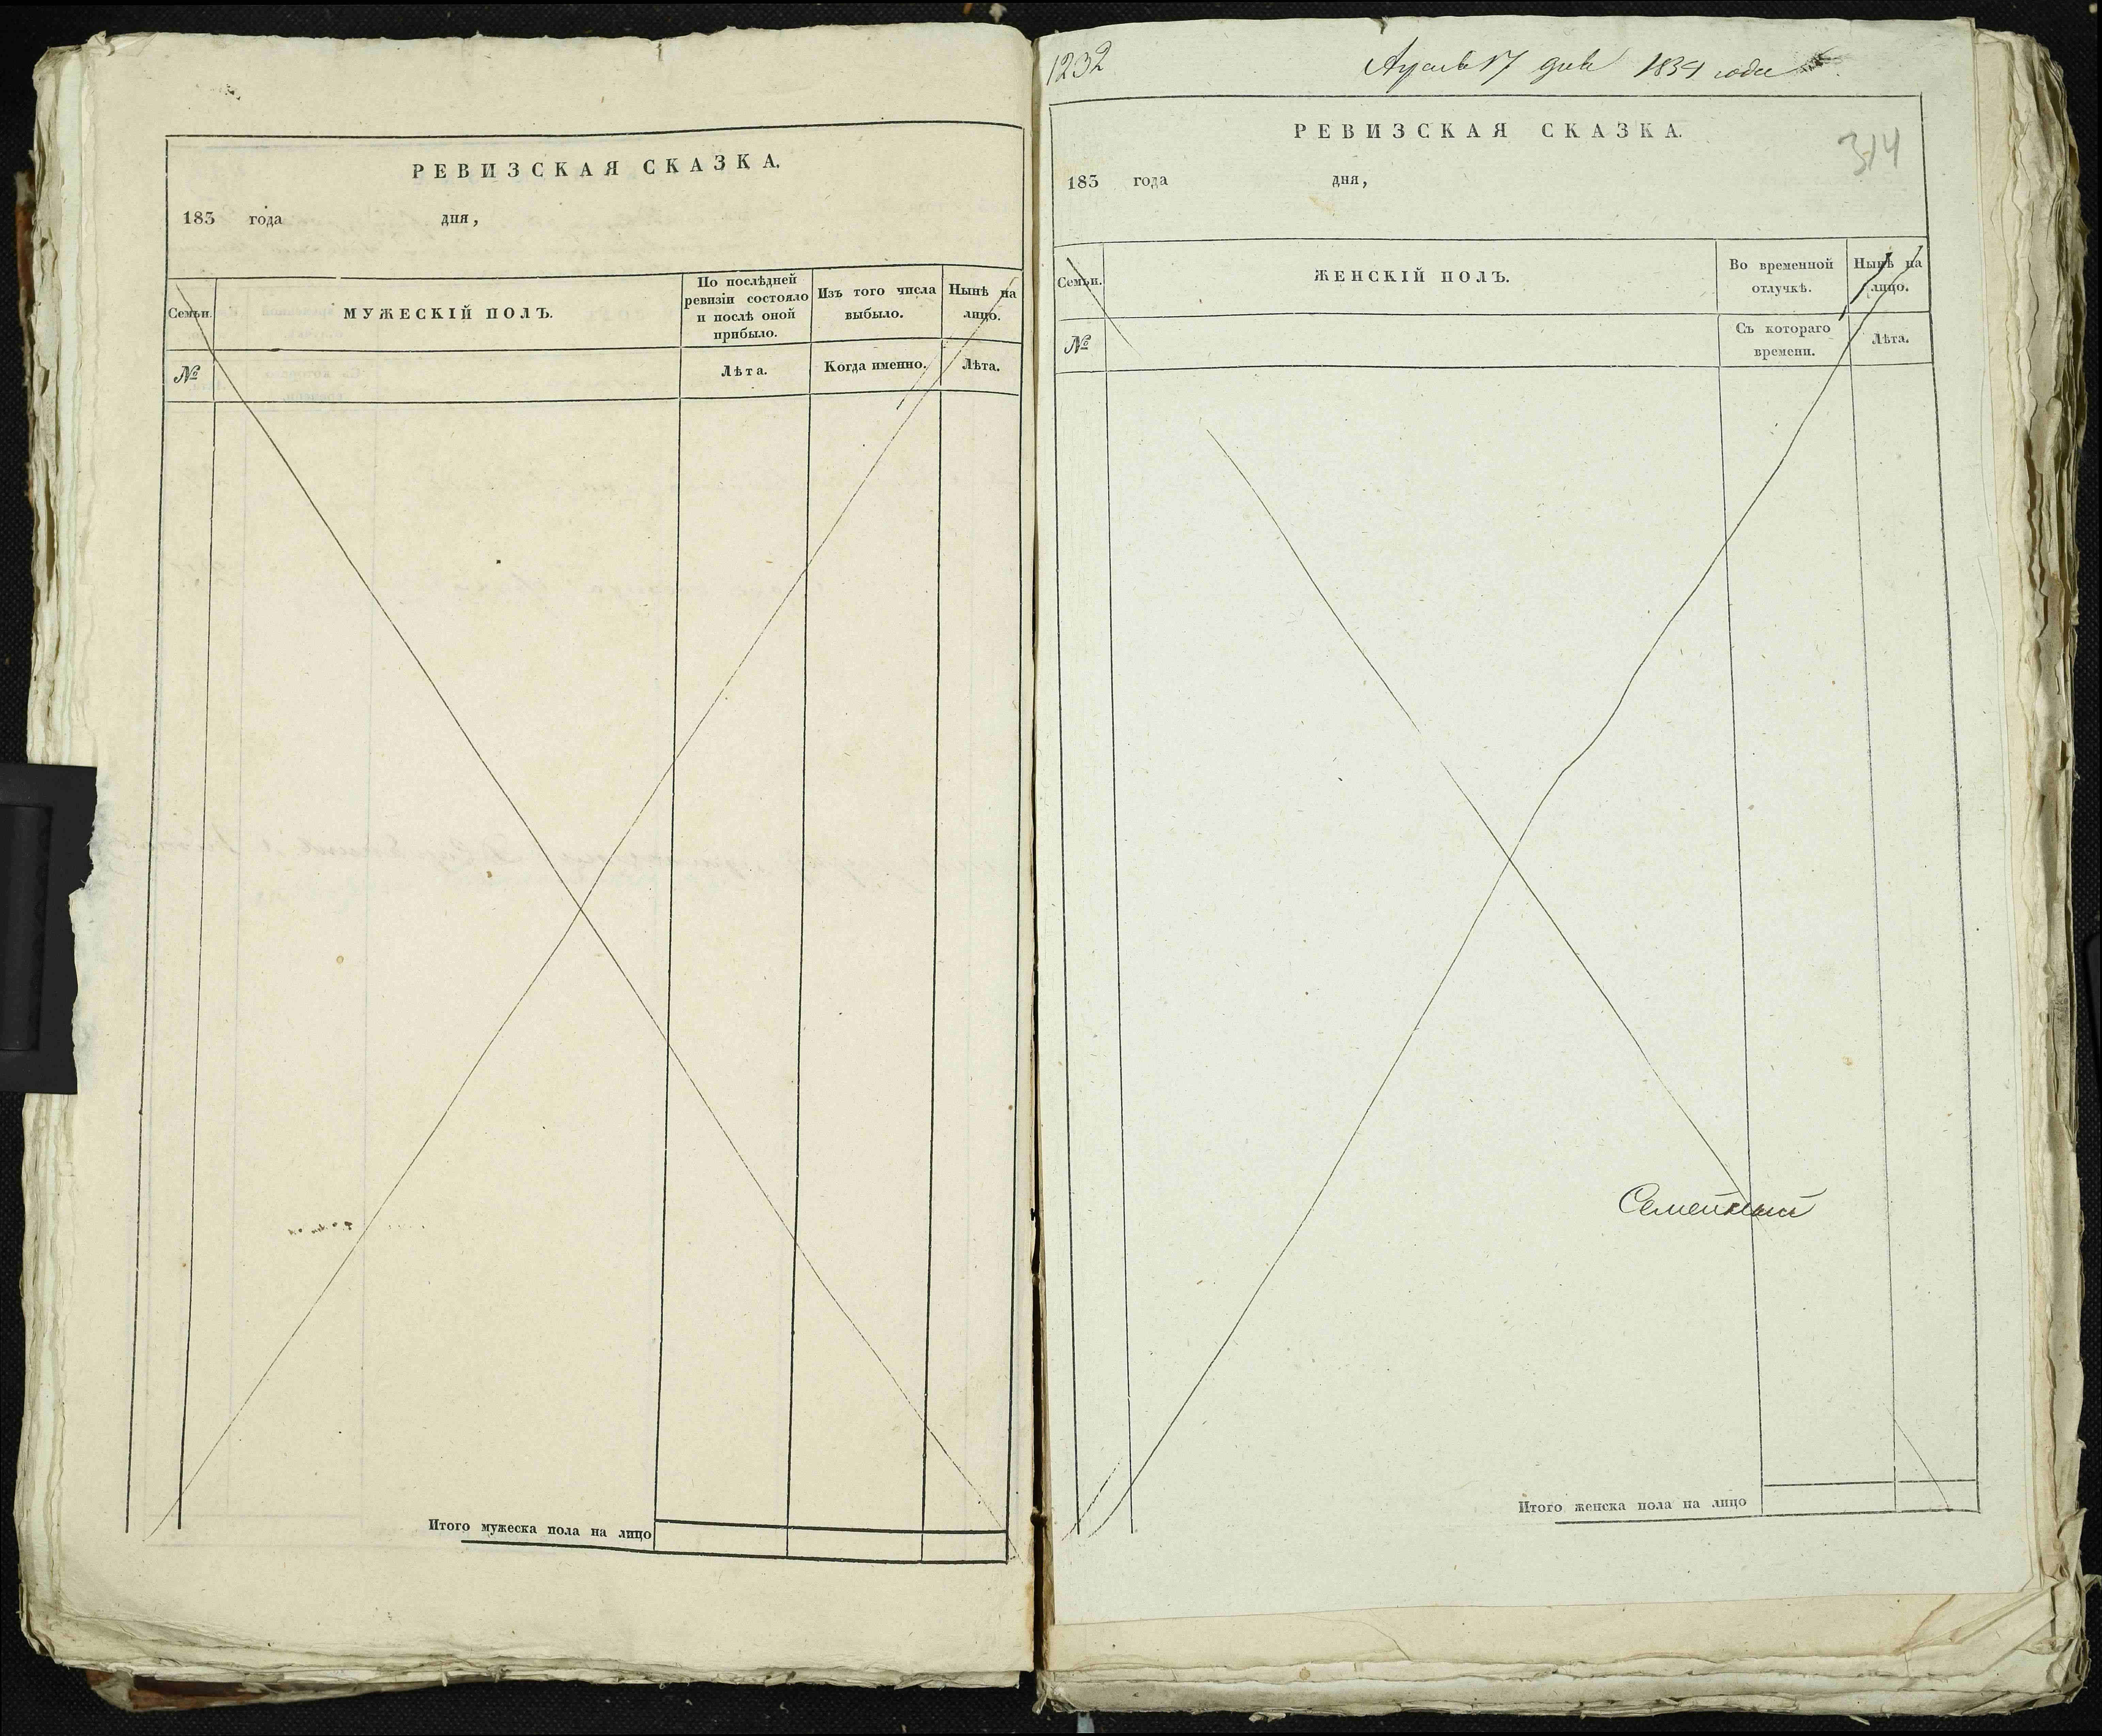 РЕВИЗСКАЯ СКАЗКА.
183 года дня,
Семьи.
МУЖЕСКІЙ ПОЛЪ.
По послѣдней ревизіи состояло и послѣ оной прибыло.
Изъ того числа выбыло.
Нынѣ на лицо.
№
Лѣта.
Когда именно.
Лѣта.
Итого мужеска пола на лицо
1232
17 дня 1834 года
РЕВИЗСКАЯ СКАЗКА.
314
183 года дня,
Семьи.
ЖЕНСКІЙ ПОЛЪ.
Во временной отлучкѣ.
Нынѣ на лицо.
№
Съ котораго времени.
Лѣта.
Итого женска пола на лицо